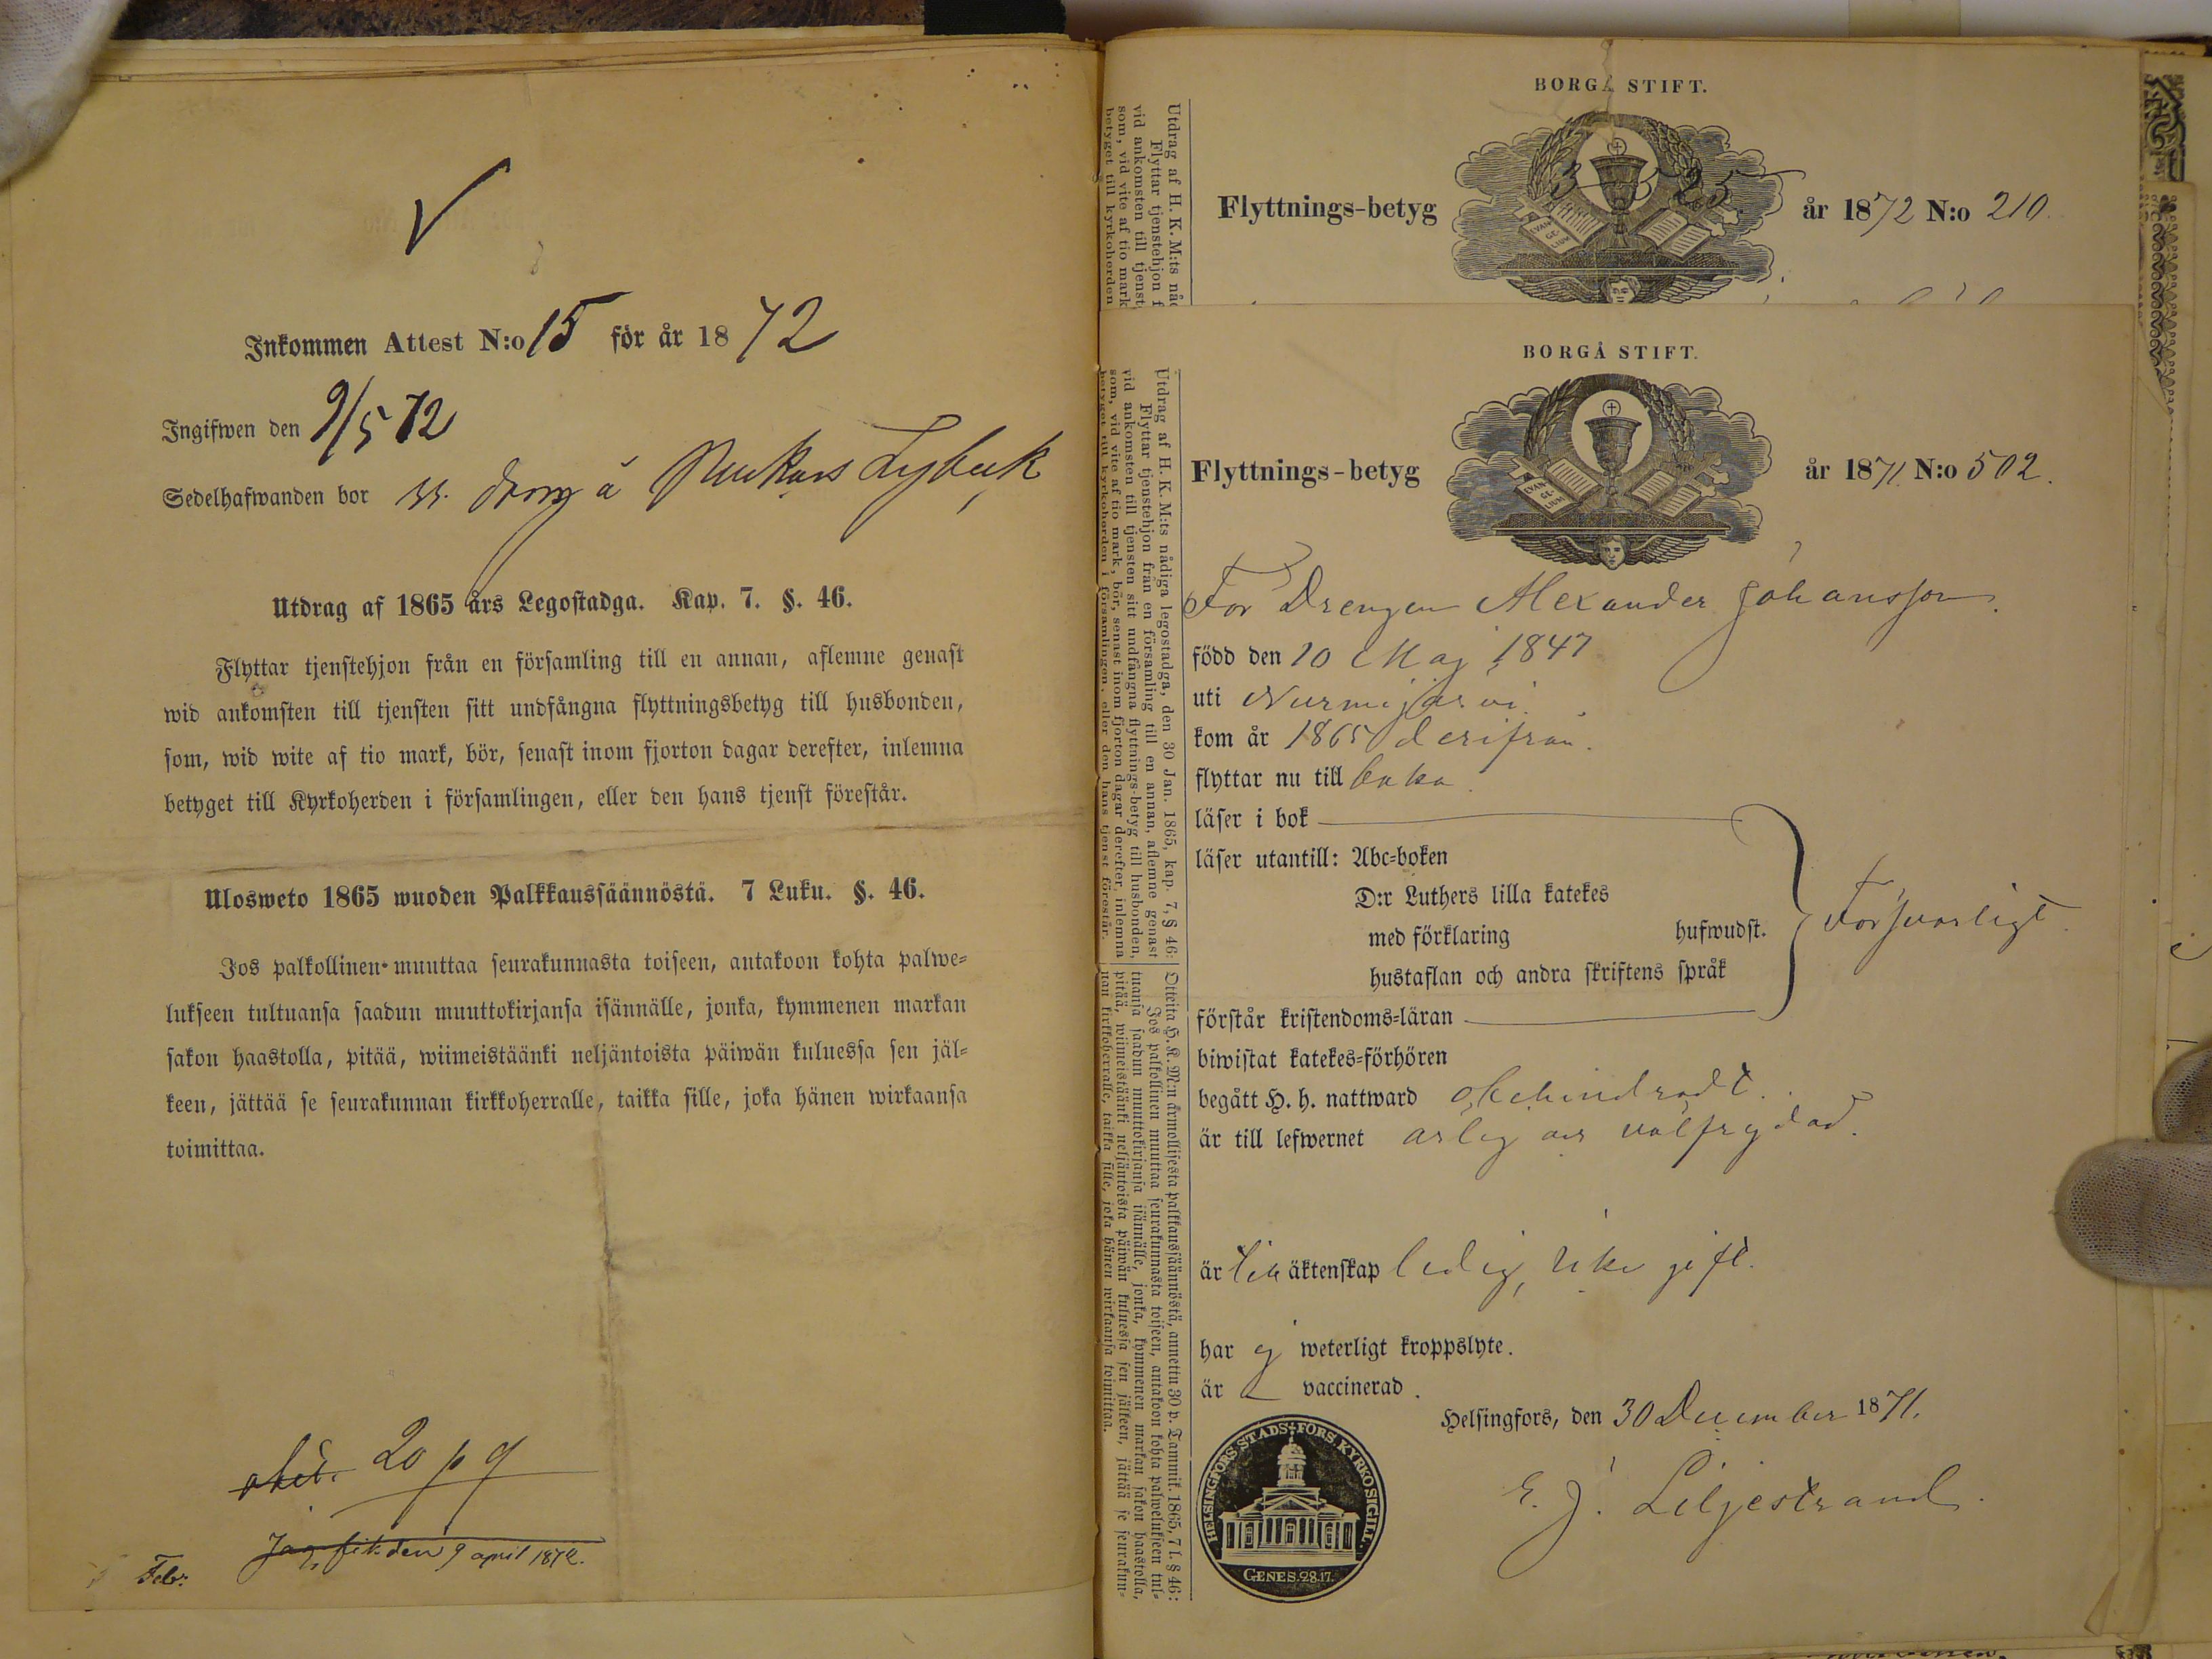 Inkommen Attest N:o 15 för år 1872
Ingifwen den 9/5 72
Sedelhafwanden bor dräng å
Utdrag af 1865 års Legostadga. Kap. 7. §. 46.
Flyttar tjenstehjon från en församling till en annan, aflemne genast
wid ankomsten till tjensten sitt undfångna flyttningsbetyg till husbonden,
som, wid wite af tio mark, bör, senast inom fjorton dagar derefter, inlemna
betyget till Kyrkoherden i församlingen, eller den hans tjenst förestår.
Ulosweto 1865 wuoden Palkkaussäännöstä. 7 Luku. §. 46.
Jos palkollinen muuttaa seurakunnasta toiseen, antakoon kohta palwe-
lukseen tultuansa saadun muuttokirjansa isännälle, jonka, kymmenen markan
sakon haastolla, pitää, wiimeistäänki neljäntoista päiwän kuluessa sen jäl-
keen, jättää se seurakunnan kirkkoherralle, taikka sille, joka hänen wirkaansa
toimittaa.
20 p
Febr:
den 9 april 1872.
BORGÅ STIFT.
Flyttnings-betyg
25
år 1872 N:o 210.
EVAN-
GE-
LIUM
Utdrag af H. K. M:ts nåd
Flyttar tjenstehjon f
vid ankomsten till tjenst
som, vid vite af tio mark
betyget till kyrkoherden
BORGÅ STIFT.
EVAN-
GE-
LIUM
Flyttnings-betyg år 1871. N:o 502.
För Drengen Alexander Johansson.
född den 10 Maj 1847
uti Nurmijärvi.
kom år 1865 derifrån.
flyttar nu till baka.
läser i bok
läser utantill: Abc-boken
D:r Luthers lilla katekes
med förklaring hufwudst.
hustaflan och andra skriftens språk
Försvarligt.
förstår kristendoms-läran
biwistat katekes-förhören
begått H. h. nattward obehindradt.
är till lefwernet ärlig och välfrejdad.
är till äktenskap ledig, icke gift.
har ej weterligt kroppslyte.
är vaccinerad.
Helsingfors, den 30 December 1871.
E. J. Liljestrand.
HELSINGFORS STADS FÖRS. KYRKOSIGILL.
GENES. 28.17.
Utdrag af H. K. M:ts nådiga legostadga, den 30 Jan. 1865, kap. 7, § 46:
Flyttar tjenstehjon från en församling till en annan, aflemne genast
vid ankomsten till tjensten sitt undfångna flyttnings-betyg till husbonden,
som, vid vite af tio mark, bör, senast inom fjorton dagar derefter, inlemna
betyget till kyrkoherden i församlingen, eller den hans tjenst förestår.
Otteita H. K. M:n armollisesta palkkaussäännöstä, annettu 30 p. Tammik. 1865, 7 l. § 46:
Jos palkollinen muuttaa seurakunnasta toiseen, antakoon kohta palwelukseen tul-
tuansa saadun muuttokirjansa isännälle, jonka, kymmenen markan sakon haastolla,
pitää, wiimeistäänki neljäntoista päiwän kuluessa sen jälkeen, jättää se seurakun-
nan kirkkoherralle, taikka sille, joka hänen wirkaansa toimittaa.